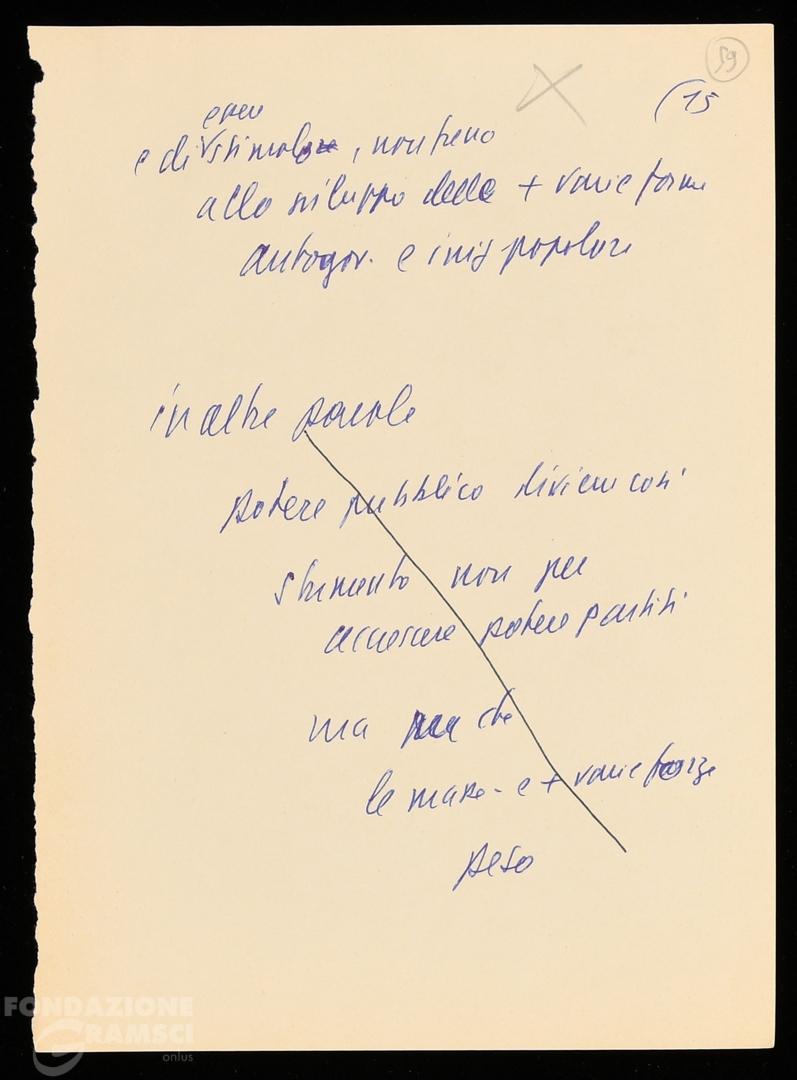 59
(15
e di essere stimolo, non freno
allo sviluppo delle + varie forme
autogov. e iniz popolare
in altre parole
potere pubblico diviene così
strumento non per
accrescere potere partiti
ma per che
le masse - e + varie forze
peso
FONDAZIONE
GRAMSCI
onlus